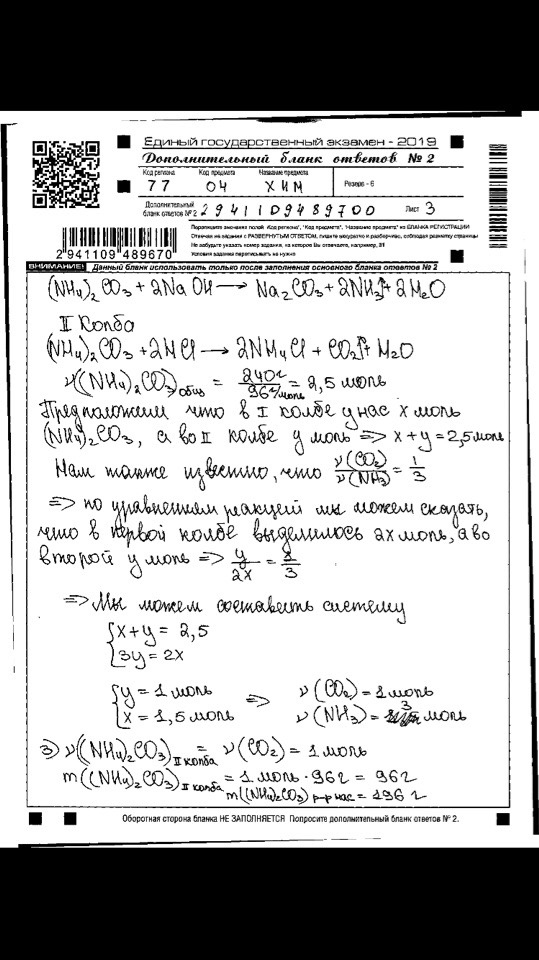 Единый государственный экзамен - 2019
Дополнительный бланк ответов № 2
Код региона Код предмета Название предмета
77 04 ХИМ Резерв - 6
Дополнительный бланк ответов № 2 2941109489700 Лист 3
2941109 489670
Перепишите значения полей "Код региона", "Код предмета", "Название предмета" из БЛАНКА РЕГИСТРАЦИИ
Отвечая на задания с РАЗВЕРНУТЫМ ОТВЕТОМ, пишите аккуратно и разборчиво, соблюдая разметку страницы
Не забудьте указать номер задания, на которое Вы отвечаете, например, 31
Условия задания переписывать не нужно
ВНИМАНИЕ! Данный бланк использовать только после заполнения основного бланка ответов № 2
(NH4)2CO3 + 2NaOH → Na2CO3 + 2NH3↑ + 2H2O
II Колба
(NH4)2CO3 + 2HCl → 2NH4Cl + CO2↑ + H2O
ν((NH4)2CO3)общ = 240г/96г/моль = 2,5 моль
Предположим что в I колбе у нас x моль
(NH4)2CO3, а во II колбе y моль => x + y = 2,5 моль
Нам также известно, что ν(CO2)/ν(NH3) = 1/3
=> по уравнениям реакций мы можем сказать,
что в первой колбе выделилось 2x моль, а во
второй y моль => y/2x = 1/3
=> Мы можем составить систему
{x + y = 2,5
{3y = 2x
{y = 1 моль => ν(CO2) = 1 моль
{x = 1,5 моль ν(NH3) = 3 моль
3) ν((NH4)2CO3) II колба = ν(CO2) = 1 моль
m((NH4)2CO3) II колба = 1 моль · 96 г = 96 г
m((NH4)2CO3) р-р нас = 196 г
Оборотная сторона бланка НЕ ЗАПОЛНЯЕТСЯ Попросите дополнительный бланк ответов № 2.